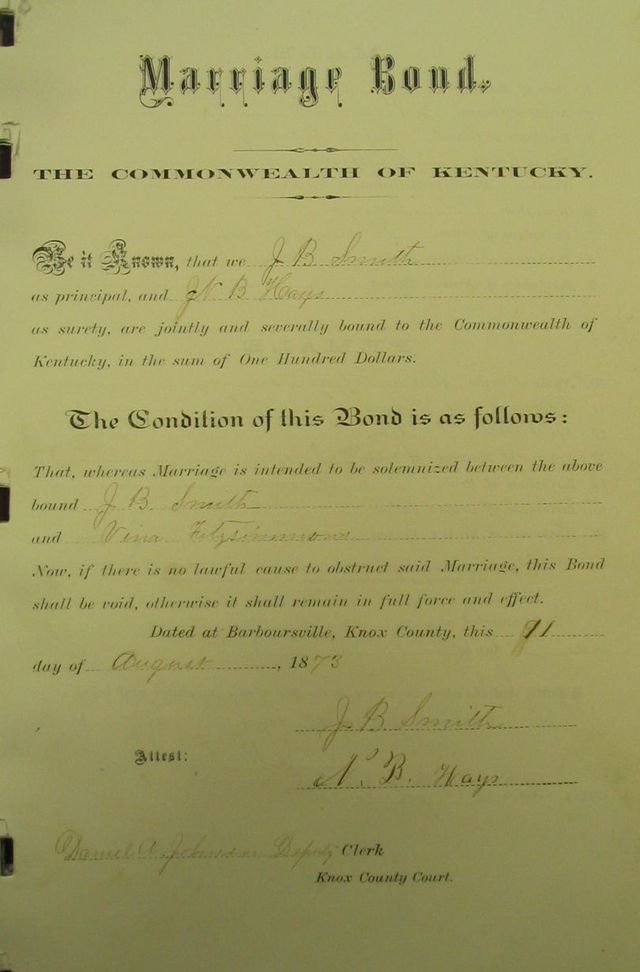 Marriage Bond.
THE COMMONWEALTH OF KENTUCKY.
Be it Known, that we J B Smith
as principal, and N B Hays
as surety, are jointly and severally bound to the Commonwealth of
Kentucky, in the sum of One Hundred Dollars.
The Condition of this Bond is as follows:
That, whereas Marriage is intended to be solemnized between the above
bound J B. Smith
and Vina Fitzsimmons
Now, if there is no lawful cause to obstruct said Marriage, this Bond
shall be void, otherwise it shall remain in full force and effect.
Dated at Barboursville, Knox County, this
day of August, 1873
J B Smith
Attest:
N. B. Hays
Daniel A. Johnson Deputy Clerk
Knox County Court.